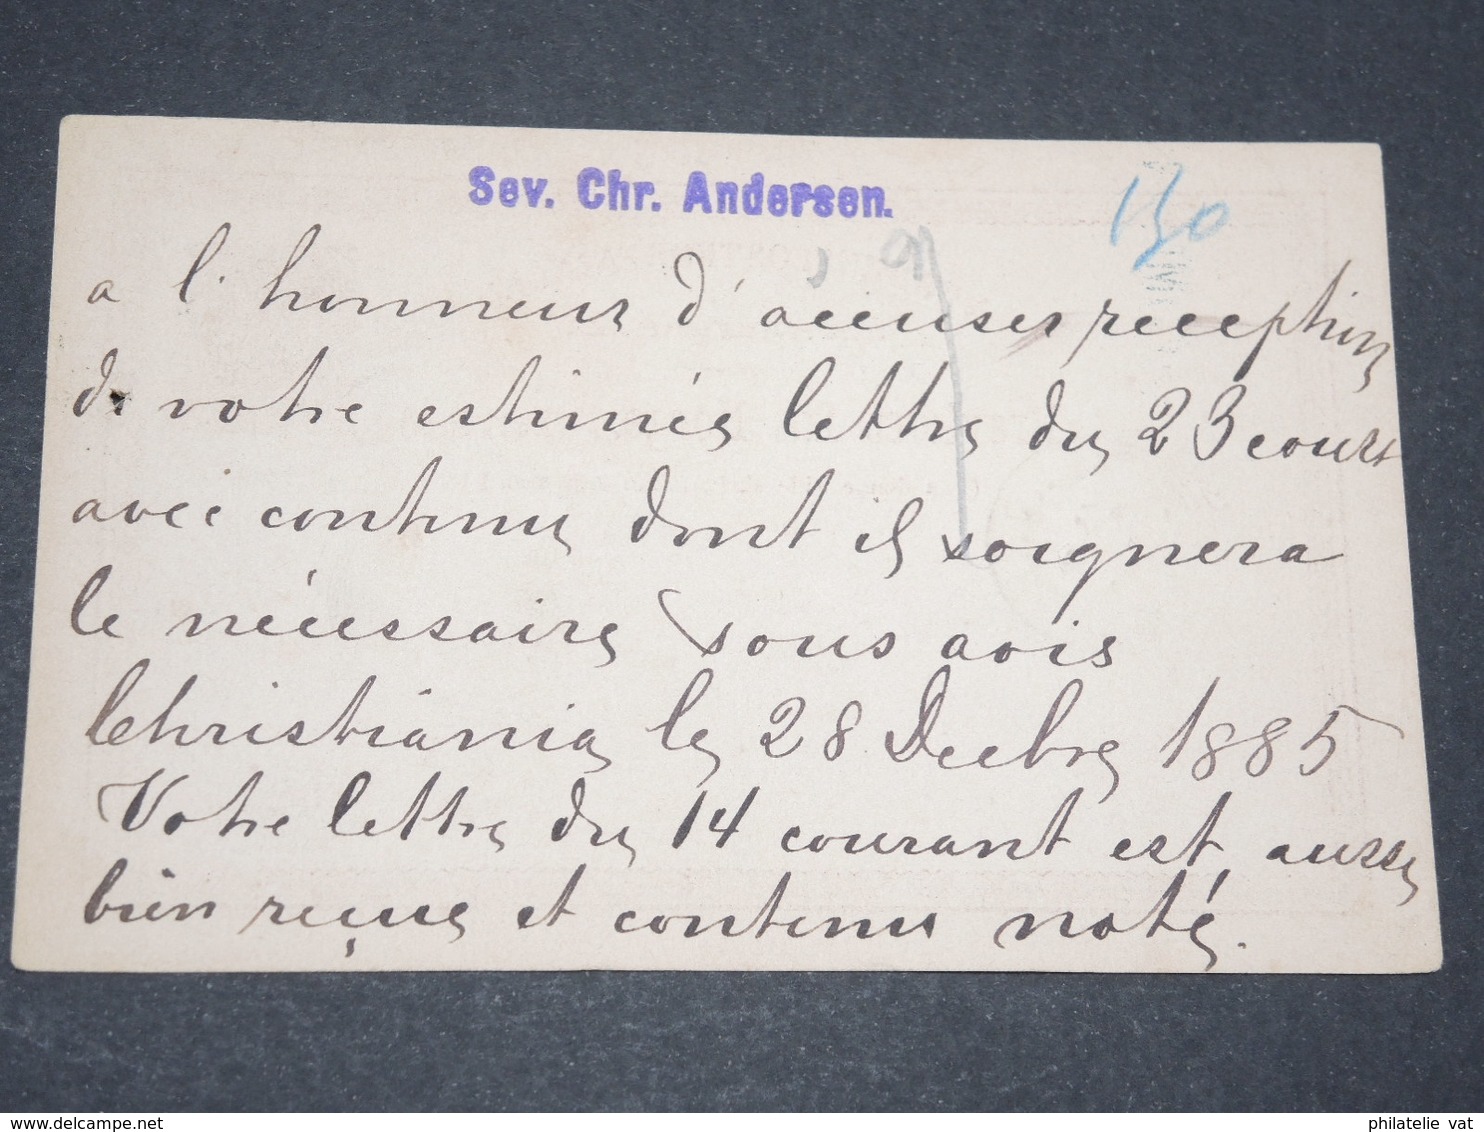 Sev. Chr. Andersen.
150
a l'honneur d'accuser reception
de votre estimée lettre du 23 court
avec contenu dont il soignera
le nécessaire sous avis
Christiania le 28 Decbre 1885
Votre lettre du 14 courant est aussi
bien reçue et contenu noté.
www.delcampe.net
philatelie vat